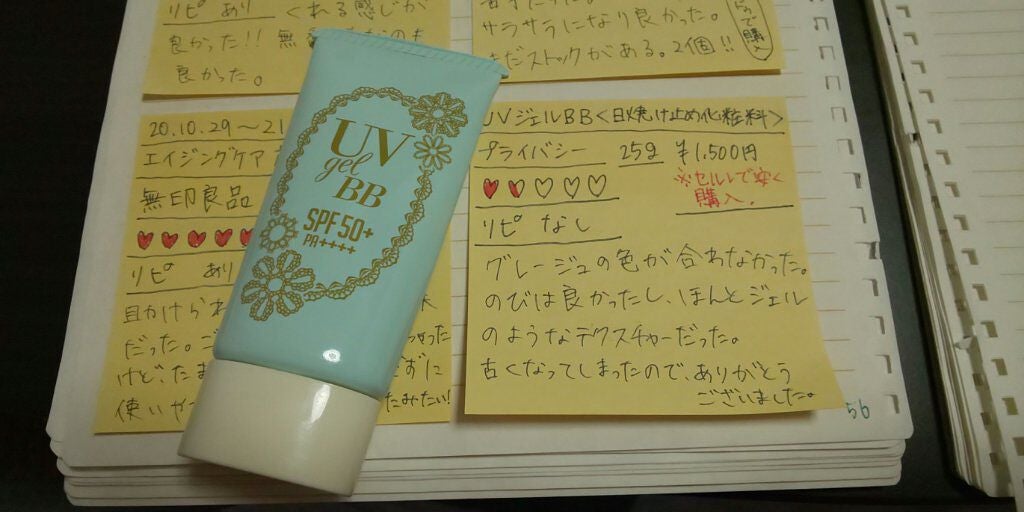 リピ あり くれる感じが
良かった!! 無
良かった。
サラサラになり良かった。
まだストックがある。2個!!
で購入
20.10.29〜21
エイジングケア
無印良品
リピ あり
だった。
けど、たま
使いやす
たみたい!
UV
gel
BB
SPF50+
PA++++
UVジェルBB<日焼け止め化粧料>
プライバシー 25g ¥1,500円
※セルレで安く
購入。
リピ なし
グレージュの色が合わなかった。
のびは良かったし、ほんとジェル
のようなテクスチャーだった。
古くなってしまったので、ありがとう
ございました。
56